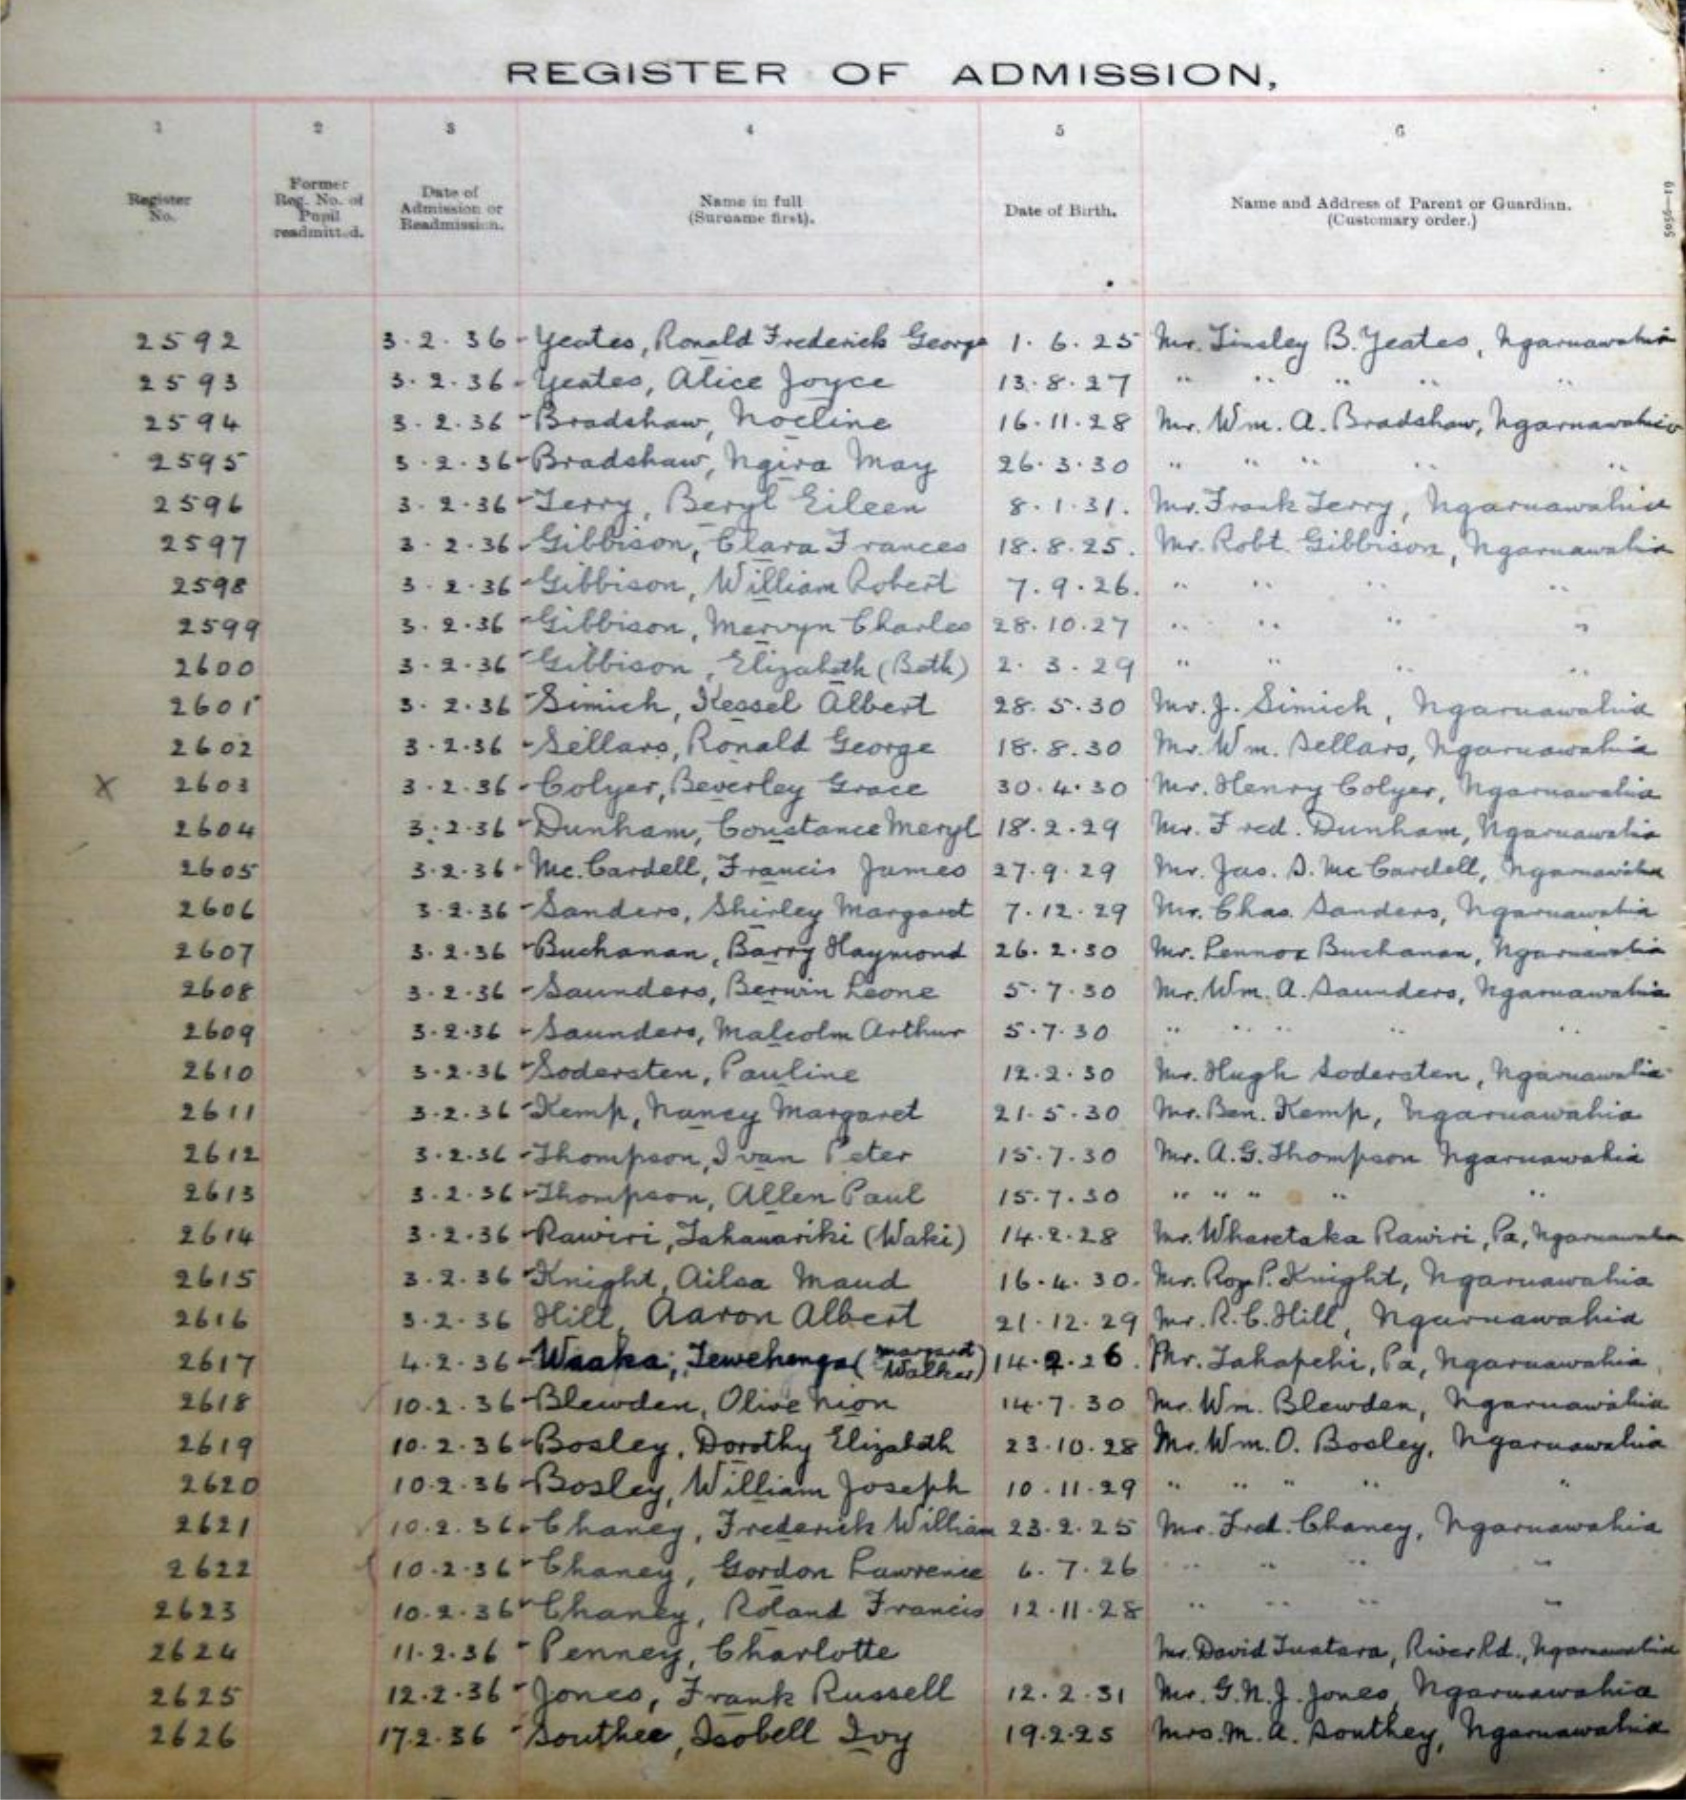 REGISTER OF ADMISSION,
1 2 3 4 5 6
Register No. Former Reg. No. of Pupil readmitted. Date of Admission or Readmission. Name in full (Surname first). Date of Birth. Name and Address of Parent or Guardian. (Customary order.)
5956—19
2592 3.2.36 - Yeates, Ronald Frederick George 1.6.25 Mr. Tinsley B. Yeates, Ngaruawahia
2593 3.2.36 - Yeates, Alice Joyce 13.8.27 " " " " "
2594 3.2.36 - Bradshaw, Noeline 16.11.28 Mr. Wm. A. Bradshaw, Ngaruawahia
2595 3.2.36 - Bradshaw, Ngira May 26.3.30 " " " " "
2596 3.2.36 - Terry, Beryl Eileen 8.1.31. Mr. Frank Terry, Ngaruawahia
2597 3.2.36 - Gibbison, Clara Frances 18.8.25. Mr. Robt. Gibbison, Ngaruawahia
2598 3.2.36 - Gibbison, William Robert 7.9.26. " " " "
2599 3.2.36 - Gibbison, Mervyn Charles 28.10.27 " " " "
2600 3.2.36 - Gibbison, Elizabeth (Beth) 2.3.29 " " " "
2601 3.2.36 - Simich, Kessel Albert 28.5.30 Mr. J. Simich, Ngaruawahia
2602 3.2.36 - Sellars, Ronald George 18.8.30 Mr. Wm. Sellars, Ngaruawahia
X 2603 3.2.36 - Colyer, Beverley Grace 30.4.30 Mr. Henry Colyer, Ngaruawahia
2604 3.2.36 - Dunham, Constance Meryl 18.2.29 Mr. Fred. Dunham, Ngaruawahia
2605 3.2.36 - Mc.Cardell, Francis James 27.9.29 Mr. Jas. S. Mc Cardell, Ngaruawahia
2606 3.2.36 - Sanders, Shirley Margaret 7.12.29 Mr. Chas. Sanders, Ngaruawahia
2607 3.2.36 - Buchanan, Barry Haymond 26.2.30 Mr. Lennox Buchanan, Ngaruawahia
2608 3.2.36 - Saunders, Berwin Leone 5.7.30 Mr. Wm. A. Saunders, Ngaruawahia
2609 3.2.36 - Saunders, Malcolm Arthur 5.7.30 " " " " "
2610 3.2.36 - Sodersten, Pauline 12.2.30 Mr. Hugh Sodersten, Ngaruawahia
2611 3.2.36 - Kemp, Nancy Margaret 21.5.30 Mr. Ben. Kemp, Ngaruawahia
2612 3.2.36 - Thompson, Ivan Peter 15.7.30 Mr. A.G. Thompson Ngaruawahia
2613 3.2.36 - Thompson, Allen Paul 15.7.30 " " " " "
2614 3.2.36 - Rawiri, Tahanariki (Waki) 14.2.28 Mr. Wharetaka Rawiri, Pa, Ngaruawahia
2615 3.2.36 - Knight, Ailsa Maud 16.4.30. Mr. Roy P. Knight, Ngaruawahia
2616 3.2.36 Hill, Aaron Albert 21.12.29 Mr. R.C. Hill, Ngaruawahia
2617 4.2.36 - Waaka, Tewehenga (Margaret Walker) 14.2.26. Mr. Takapehi, Pa, Ngaruawahia
2618 10.2.36 - Blewden, Olive Nion 14.7.30 Mr. Wm. Blewden, Ngaruawahia
2619 10.2.36 - Bosley, Dorothy Elizabeth 23.10.28 Mr. Wm. O. Bosley, Ngaruawahia
2620 10.2.36 - Bosley, William Joseph 10.11.29 " " " " "
2621 10.2.36 - Chaney, Frederick William 23.2.25 Mr. Fred. Chaney, Ngaruawahia
2622 10.2.36 - Chaney, Gordon Lawrence 6.7.26 " " " "
2623 10.2.36 - Chaney, Roland Francis 12.11.28 " " " "
2624 11.2.36 - Penney, Charlotte Mr. David Tuatara, River Rd., Ngaruawahia
2625 12.2.36 - Jones, Frank Russell 12.2.31 Mr. G.N.J. Jones, Ngaruawahia
2626 17.2.36 - Southee, Isobell Ivy 19.2.25 Mrs. M. A. Southey, Ngaruawahia